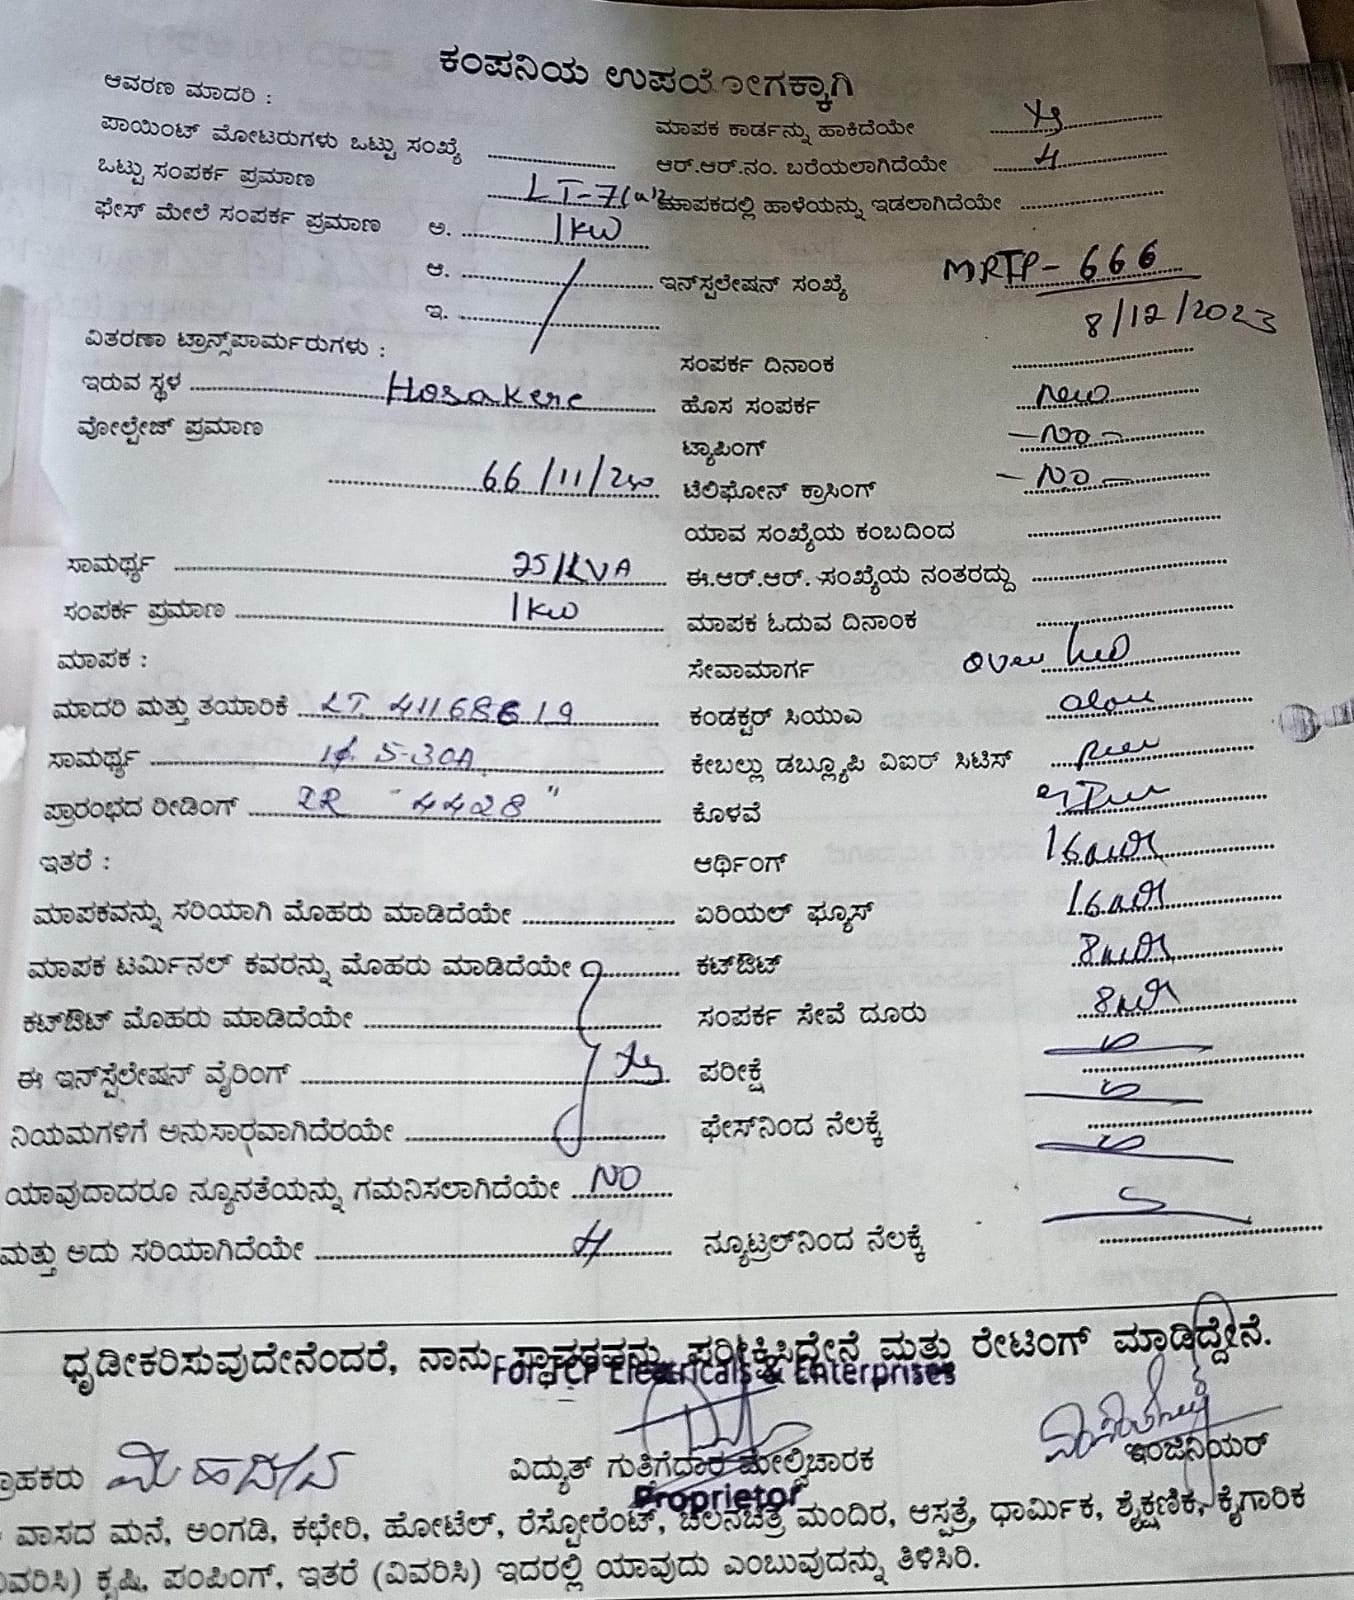 ಕಂಪನಿಯ ಉಪಯೋಗಕ್ಕಾಗಿ
ಆವರಣ ಮಾದರಿ :
ಮಾಪಕ ಕಾರ್ಡನ್ನು ಹಾಕಿದೆಯೇ
ಪಾಯಿಂಟ್ ಮೋಟರುಗಳು ಒಟ್ಟು ಸಂಖ್ಯೆ
ಆರ್.ಆರ್.ನಂ. ಬರೆಯಲಾಗಿದೆಯೇ
ಒಟ್ಟು ಸಂಪರ್ಕ ಪ್ರಮಾಣ LT-7(a)
ಮಾಪಕದಲ್ಲಿ ಹಾಳೆಯನ್ನು ಇಡಲಾಗಿದೆಯೇ
ಫೇಸ್ ಮೇಲೆ ಸಂಪರ್ಕ ಪ್ರಮಾಣ ಅ. 1kw
ಆ.
ಇನ್‌ಸ್ಟಲೇಷನ್ ಸಂಖ್ಯೆ MRTP-666
ಇ.
8/12/2023
ವಿತರಣಾ ಟ್ರಾನ್ಸ್‌ಪಾರ್ಮರುಗಳು :
ಸಂಪರ್ಕ ದಿನಾಂಕ
ಇರುವ ಸ್ಥಳ Hosakere
ಹೊಸ ಸಂಪರ್ಕ new
ವೋಲ್ಟೇಜ್ ಪ್ರಮಾಣ
ಟ್ಯಾಪಿಂಗ್ -No-
66/11/240
ಟೆಲಿಫೋನ್ ಕ್ರಾಸಿಂಗ್ -No-
ಯಾವ ಸಂಖ್ಯೆಯ ಕಂಬದಿಂದ
ಸಾಮರ್ಥ್ಯ 25/KVA
ಈ.ಆರ್.ಆರ್. ಸಂಖ್ಯೆಯ ನಂತರದ್ದು
ಸಂಪರ್ಕ ಪ್ರಮಾಣ 1kw
ಮಾಪಕ ಓದುವ ದಿನಾಂಕ
ಮಾಪಕ :
ಸೇವಾಮಾರ್ಗ over
ಮಾದರಿ ಮತ್ತು ತಯಾರಿಕೆ LT 41168619
ಕಂಡಕ್ಟರ್ ಸಿಯುಎ
ಸಾಮರ್ಥ್ಯ 1ϕ 5-30A
ಕೇಬಲ್ಲು ಡಬ್ಲ್ಯೂಪಿ ವಿಐರ್ ಸಿಟಿಸ್
ಪ್ರಾರಂಭದ ರೀಡಿಂಗ್ IR "4428"
ಕೊಳವೆ
ಇತರೆ :
ಆರ್ಥಿಂಗ್
ಮಾಪಕವನ್ನು ಸರಿಯಾಗಿ ಮೊಹರು ಮಾಡಿದೆಯೇ
ಏರಿಯಲ್ ಫ್ಯೂಸ್
ಮಾಪಕ ಟರ್ಮಿನಲ್ ಕವರನ್ನು ಮೊಹರು ಮಾಡಿದೆಯೇ
ಕಟ್‌ಔಟ್
ಕಟ್‌ಔಟ್ ಮೊಹರು ಮಾಡಿದೆಯೇ
ಸಂಪರ್ಕ ಸೇವೆ ದೂರು
ಈ ಇನ್‌ಸ್ಟೆಲೇಷನ್ ವೈರಿಂಗ್
ಪರೀಕ್ಷೆ
ನಿಯಮಗಳಿಗೆ ಅನುಸಾರವಾಗಿದೆರಯೇ
ಫೇಸ್‌ನಿಂದ ನೆಲಕ್ಕೆ
ಯಾವುದಾದರೂ ನ್ಯೂನತೆಯನ್ನು ಗಮನಿಸಲಾಗಿದೆಯೇ NO
ಮತ್ತು ಅದು ಸರಿಯಾಗಿದೆಯೇ
ನ್ಯೂಟ್ರಲ್‌ನಿಂದ ನೆಲಕ್ಕೆ
ಧೃಡೀಕರಿಸುವುದೇನೆಂದರೆ, ನಾನು ಸ್ಥಾವರವನ್ನು ಪರೀಕ್ಷಿಸಿದ್ದೇನೆ ಮತ್ತು ರೇಟಿಂಗ್ ಮಾಡಿದ್ದೇನೆ.
For Electricals & Enterprises
ಮಹದೇವ
ವಿದ್ಯುತ್ ಗುತ್ತಿಗೆದಾರ ಮೇಲ್ವಿಚಾರಕ
ಇಂಜಿನಿಯರ್
Proprietor
ವಾಸದ ಮನೆ, ಅಂಗಡಿ, ಕಛೇರಿ, ಹೋಟೆಲ್, ರೆಸ್ಟೋರೆಂಟ್, ಚಲನಚಿತ್ರ ಮಂದಿರ, ಆಸ್ಪತ್ರೆ, ಧಾರ್ಮಿಕ, ಶೈಕ್ಷಣಿಕ, ಕೈಗಾರಿಕ
ಕೃಷಿ, ಪಂಪಿಂಗ್, ಇತರೆ (ವಿವರಿಸಿ) ಇದರಲ್ಲಿ ಯಾವುದು ಎಂಬುವುದನ್ನು ತಿಳಿಸಿರಿ.